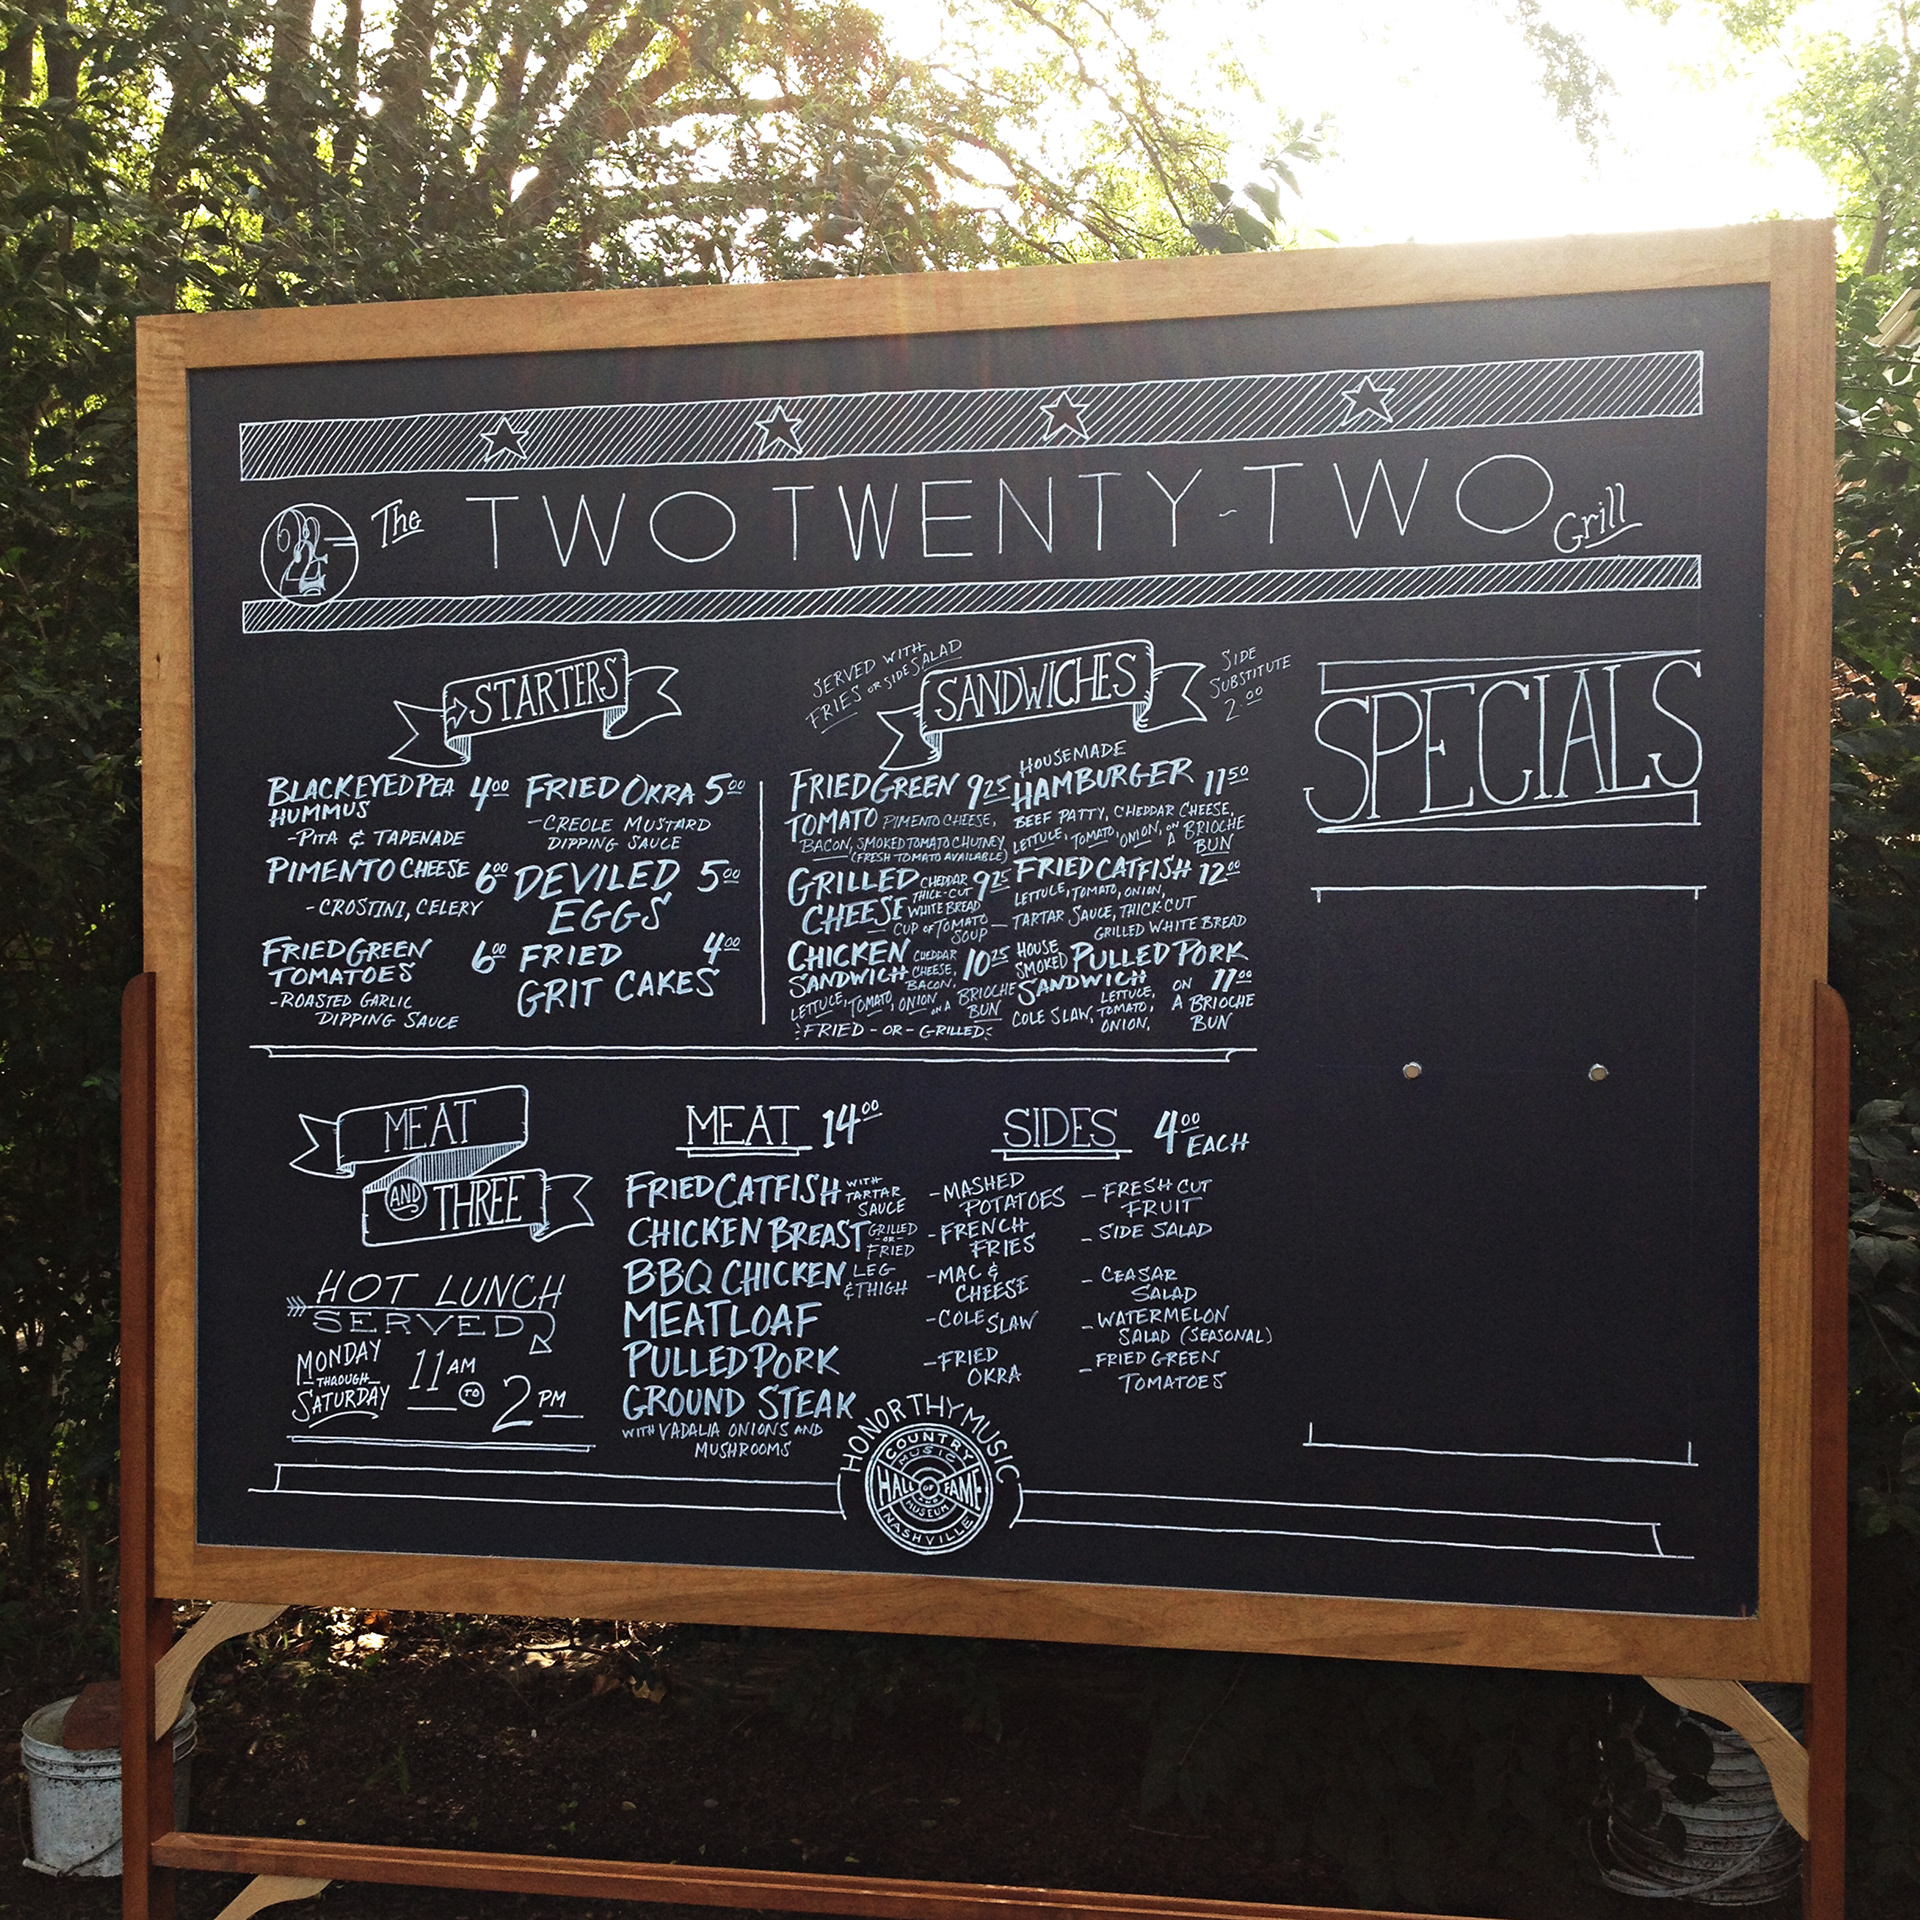 The TWO TWENTY-TWO Grill
222
STARTERS
BLACKEYED PEA 4.00
HUMMUS
-PITA & TAPENADE
PIMENTO CHEESE 6.00
- CROSTINI, CELERY
FRIED GREEN 6.00
TOMATOES
-ROASTED GARLIC
DIPPING SAUCE
FRIED OKRA 5.00
-CREOLE MUSTARD
DIPPING SAUCE
DEVILED 5.00
EGGS
FRIED 4.00
GRIT CAKES
SERVED WITH
FRIES OR SIDE SALAD
SANDWICHES
SIDE
SUBSTITUTE
2.00
FRIED GREEN 9.25
TOMATO PIMENTO CHEESE,
BACON, SMOKED TOMATO CHUTNEY
(FRESH TOMATO AVAILABLE)
GRILLED CHEDDAR 9.25
THICK-CUT
CHEESE WHITE BREAD
CUP OF TOMATO
SOUP
CHICKEN CHEDDAR 10.25
SANDWICH CHEESE,
BACON,
LETTUCE, TOMATO, ONION, ON A BRIOCHE
BUN
FRIED -OR- GRILLED
HOUSEMADE
HAMBURGER 11.50
BEEF PATTY, CHEDDAR CHEESE,
LETTUCE, TOMATO, ONION, ON A BRIOCHE
BUN
FRIED CATFISH 12.00
LETTUCE, TOMATO, ONION,
TARTAR SAUCE, THICK-CUT
GRILLED WHITE BREAD
HOUSE
SMOKED PULLED PORK
SANDWICH 11.00
COLE SLAW, LETTUCE,
TOMATO,
ONION,
ON
A BRIOCHE
BUN
SPECIALS
MEAT
AND THREE
HOT LUNCH
SERVED
MONDAY
THROUGH
SATURDAY
11 AM
TO
2 PM
MEAT 14.00
FRIED CATFISH WITH
TARTAR
SAUCE
CHICKEN BREAST GRILLED
-OR-
FRIED
BBQ CHICKEN LEG
& THIGH
MEATLOAF
PULLED PORK
GROUND STEAK
WITH VADALIA ONIONS AND
MUSHROOMS
SIDES 4.00
EACH
-MASHED
POTATOES
-FRENCH
FRIES
-MAC &
CHEESE
-COLE SLAW
-FRIED
OKRA
- FRESH CUT
FRUIT
- SIDE SALAD
- CEASAR
SALAD
- WATERMELON
SALAD (SEASONAL)
- FRIED GREEN
TOMATOES
HONOR THY MUSIC
COUNTRY
MUSIC
HALL OF FAME
AND
MUSEUM
NASHVILLE